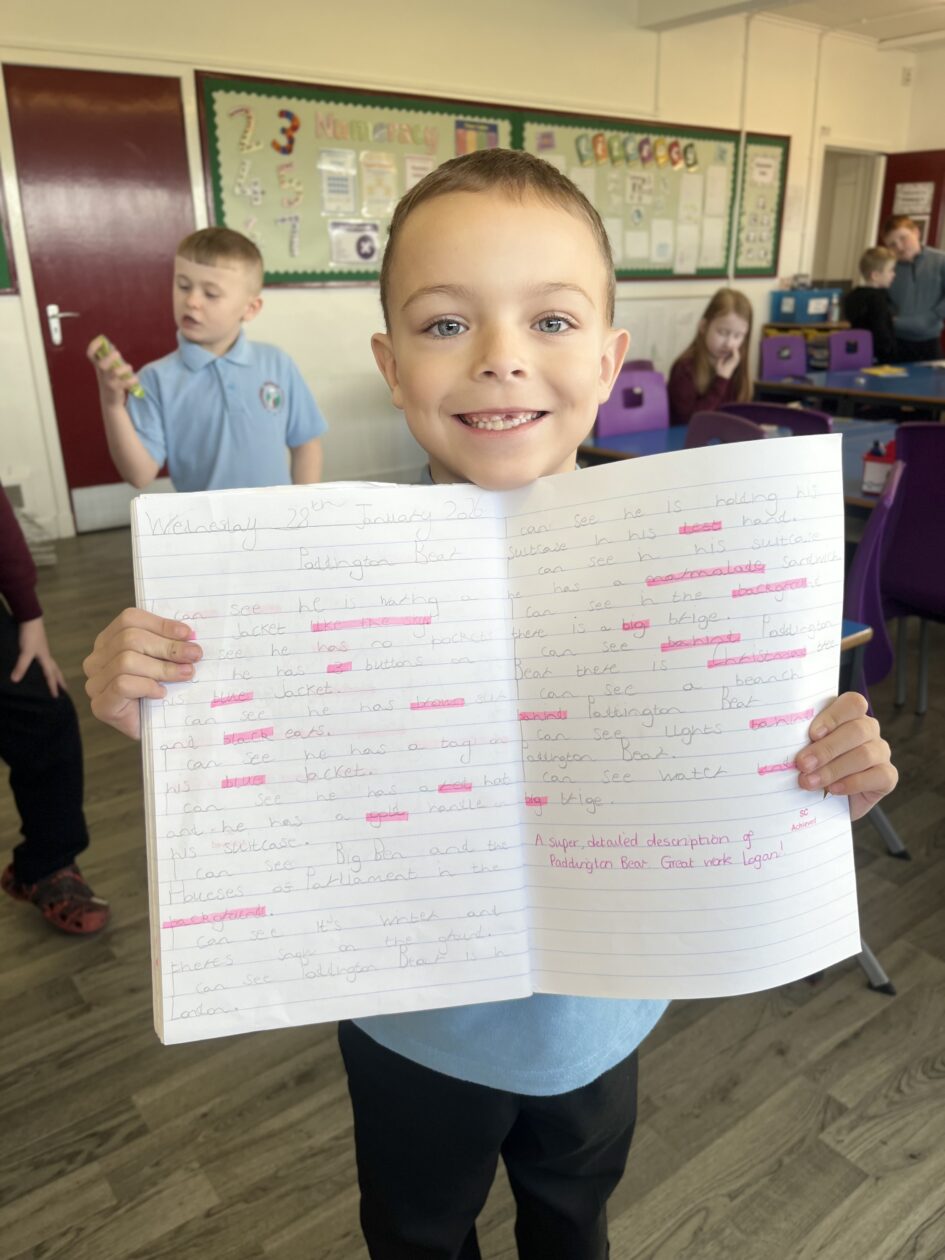 Numeracy
Wednesday 28th January 2026
Paddington Bear
I can see he is waring a
Jacket like the
see he has no pockets
he has 3 buttons on
his blue Jacket.
I can see he has brown
and black ears.
I can see he has a tag on
his blue Jacket.
I can see he has a red hat
and he has a gold handle on
his suitcase.
I can see Big Ben and the
Houeses of Parliament in the
background.
I can see It's winter and
there's snow on the ground.
I can see Paddington Bear is in
London.
can see he is holding his
suitcase in his hand.
can see in his suitcase
he has a marmalade sandwich
I can see in the
there is a big brige.
can see behind Paddington
Bear there is Christmas tree
can see a beanch
behind Paddington Bear
can see lights behind
Paddington Bear.
can see water
big brige.
SC
Achieved
A super, detailed description of
Paddington Bear. Great work Logan!